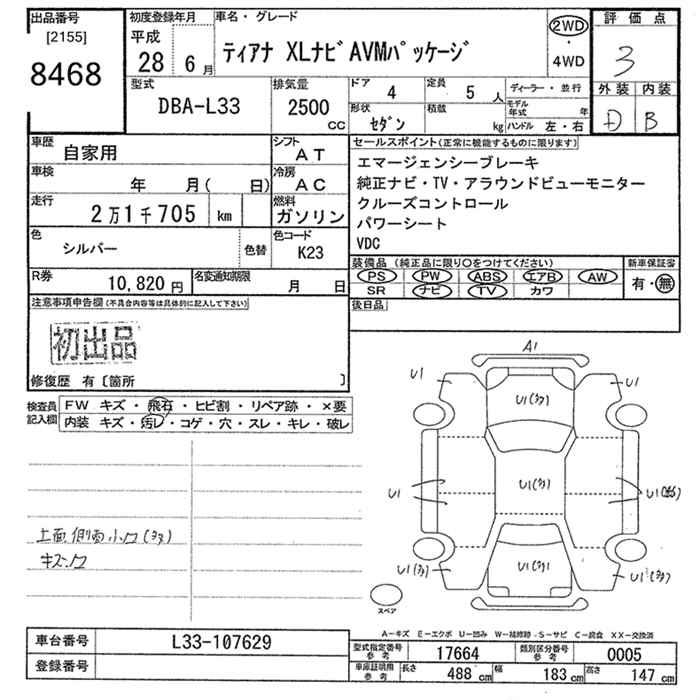 出品番号
[2155]
8468
初度登録年月
平成
28 年 6 月
車名・グレード
ティアナ XLナビAVMパッケージ
2WD
・
4WD
評価点
3
外装 内装
D B
型式
DBA-L33
排気量
2500
CC
ドア
4
定員
5 人
ディーラー・並行
形状
セダン
積載
kg
モデル年式 年
ハンドル 左・右
車歴
自家用
シフト
AT
車検
年 月( 日)
冷房
AC
走行
2万1千705 km
燃料
ガソリン
色
シルバー
色替
色コード
K23
R券
10,820 円
名変通知期限
月 日
セールスポイント(正常に機能するものに限ります)
エマージェンシーブレーキ
純正ナビ・TV・アラウンドビューモニター
クルーズコントロール
パワーシート
VDC
装備品 (純正品に限り○をつけてください)
PS PW ABS エアB AW
SR ナビ TV カワ
新車保証書
有・無
後日品
注意事項申告欄(不具合内容等は具体的に記入して下さい)
初出品
修復歴 有〔箇所 〕
検査員
記入欄
FW キズ・飛石・ヒビ割・リペア跡・×要
内装 キズ・汚レ・コゲ・穴・スレ・キレ・破レ
上面 側面 小凹(多)
キズ凹
A1
U1
U1
U1(多)
U1
U1(多)
U1(多)
U1(多)
U1(多)
U1(多)
スペア
A-キズ E-エクボ U-凹み W-補修跡 S-サビ C-腐食 XX-交換済
車台番号
L33-107629
登録番号
型式指定番号
参考
17664
類別区分番号
参考
0005
車庫証明用
参考
長さ
488 cm
幅
183 cm
高さ
147 cm